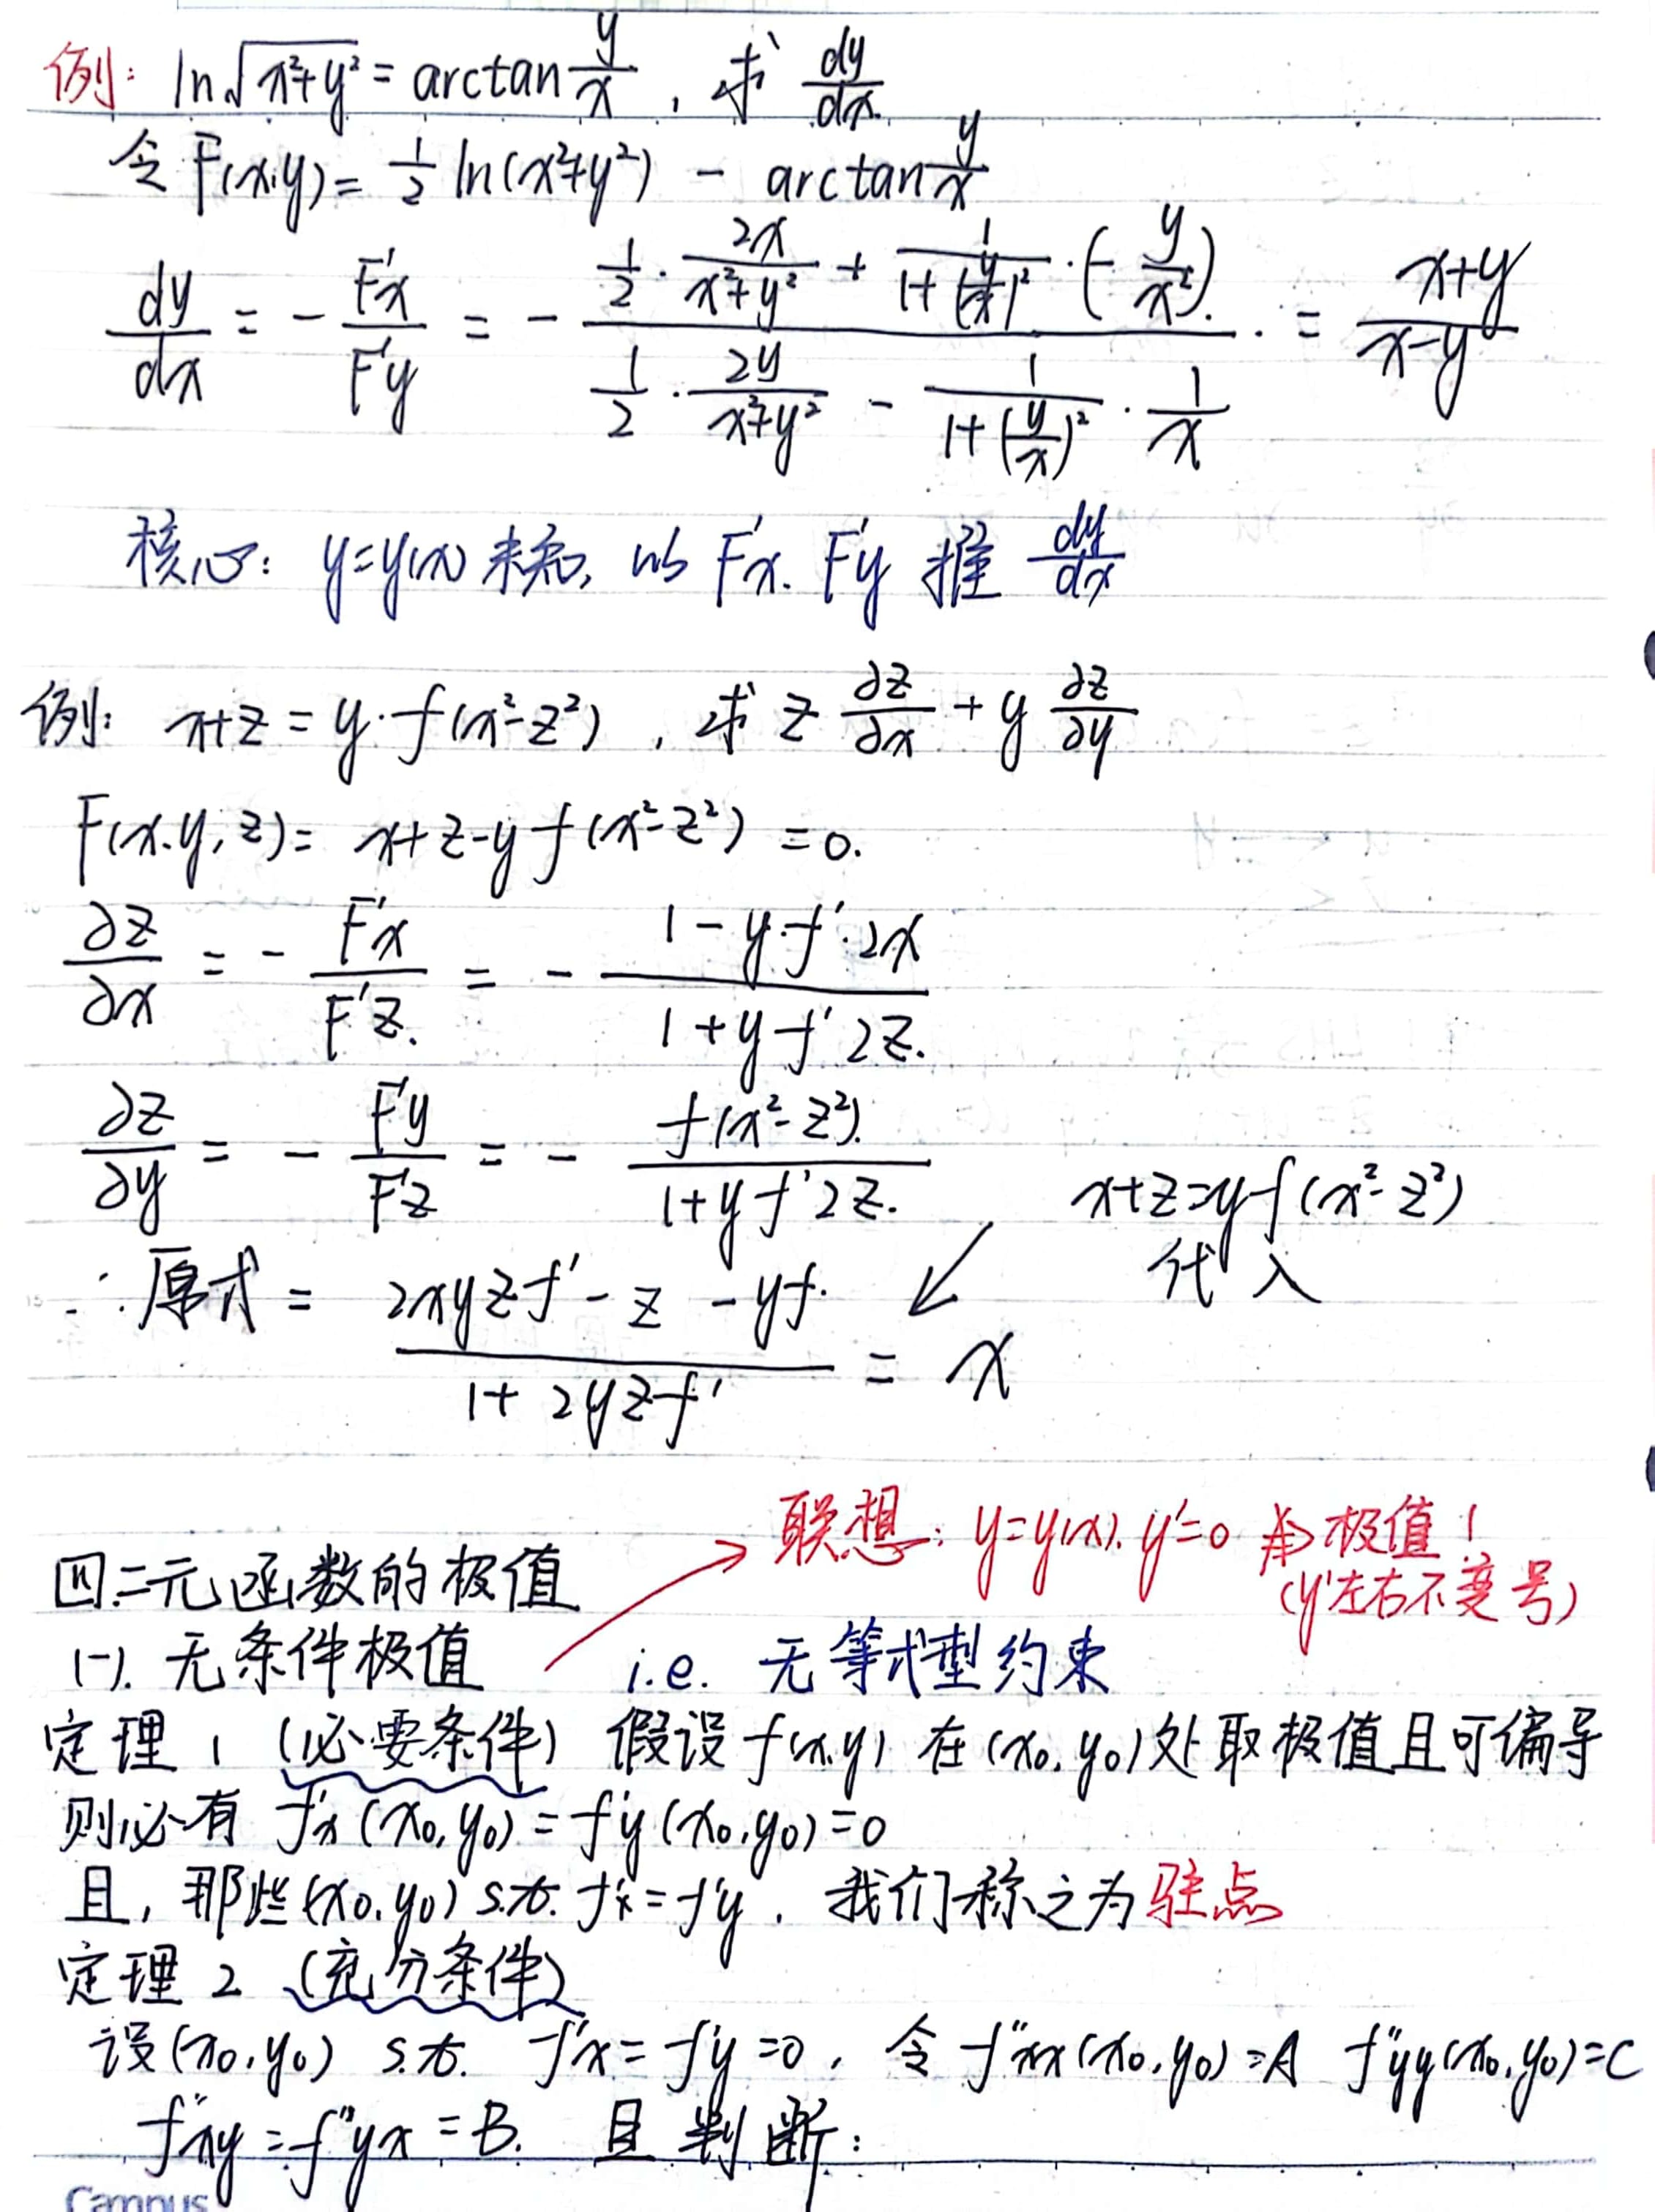 例: ln√(x²+y²) = arctan y/x , 求 dy/dx
令 F(x,y) = 1/2 ln(x²+y²) - arctan y/x
dy/dx = - F'x/F'y = - (1/2 · 2x/(x²+y²) + 1/(1+(y/x)²) · (-y/x²)) / (1/2 · 2y/(x²+y²) - 1/(1+(y/x)²) · 1/x) = (x+y)/(x-y)
核心: y=y(x) 未知, 以 F'x. F'y 推 dy/dx
例: x+z = y·f(x²-z²) , 求 z ∂z/∂x + y ∂z/∂y
F(x.y,z) = x+z-yf(x²-z²) =0.
∂z/∂x = - F'x/F'z. = - (1-y·f'·2x)/(1+yf'2z.)
∂z/∂y = - F'y/F'z = - f(x²-z²)./(1+yf'2z.)
x+z=yf(x²-z²)
代入
∴原式 = (2xyzf'-z-yf.)/(1+2yzf') = x
联想: y=y(x). y'=0 ⇏ 极值!
(y'左右不变号)
四.二元函数的极值
(一). 无条件极值 i.e. 无等式型约束
定理 1 (必要条件) 假设 f(x,y) 在 (x₀,y₀)处取极值且可偏导
则必有 f'x(x₀,y₀) = f'y(x₀,y₀)=0
且, 那些(x₀,y₀) s.t. f'x=f'y , 我们称之为驻点
定理 2 (充分条件)
设(x₀,y₀) s.t. f'x=f'y=0 , 令 f"xx(x₀,y₀)=A f"yy(x₀,y₀)=C
f"xy=f"yx=B. 且判断:
Campus